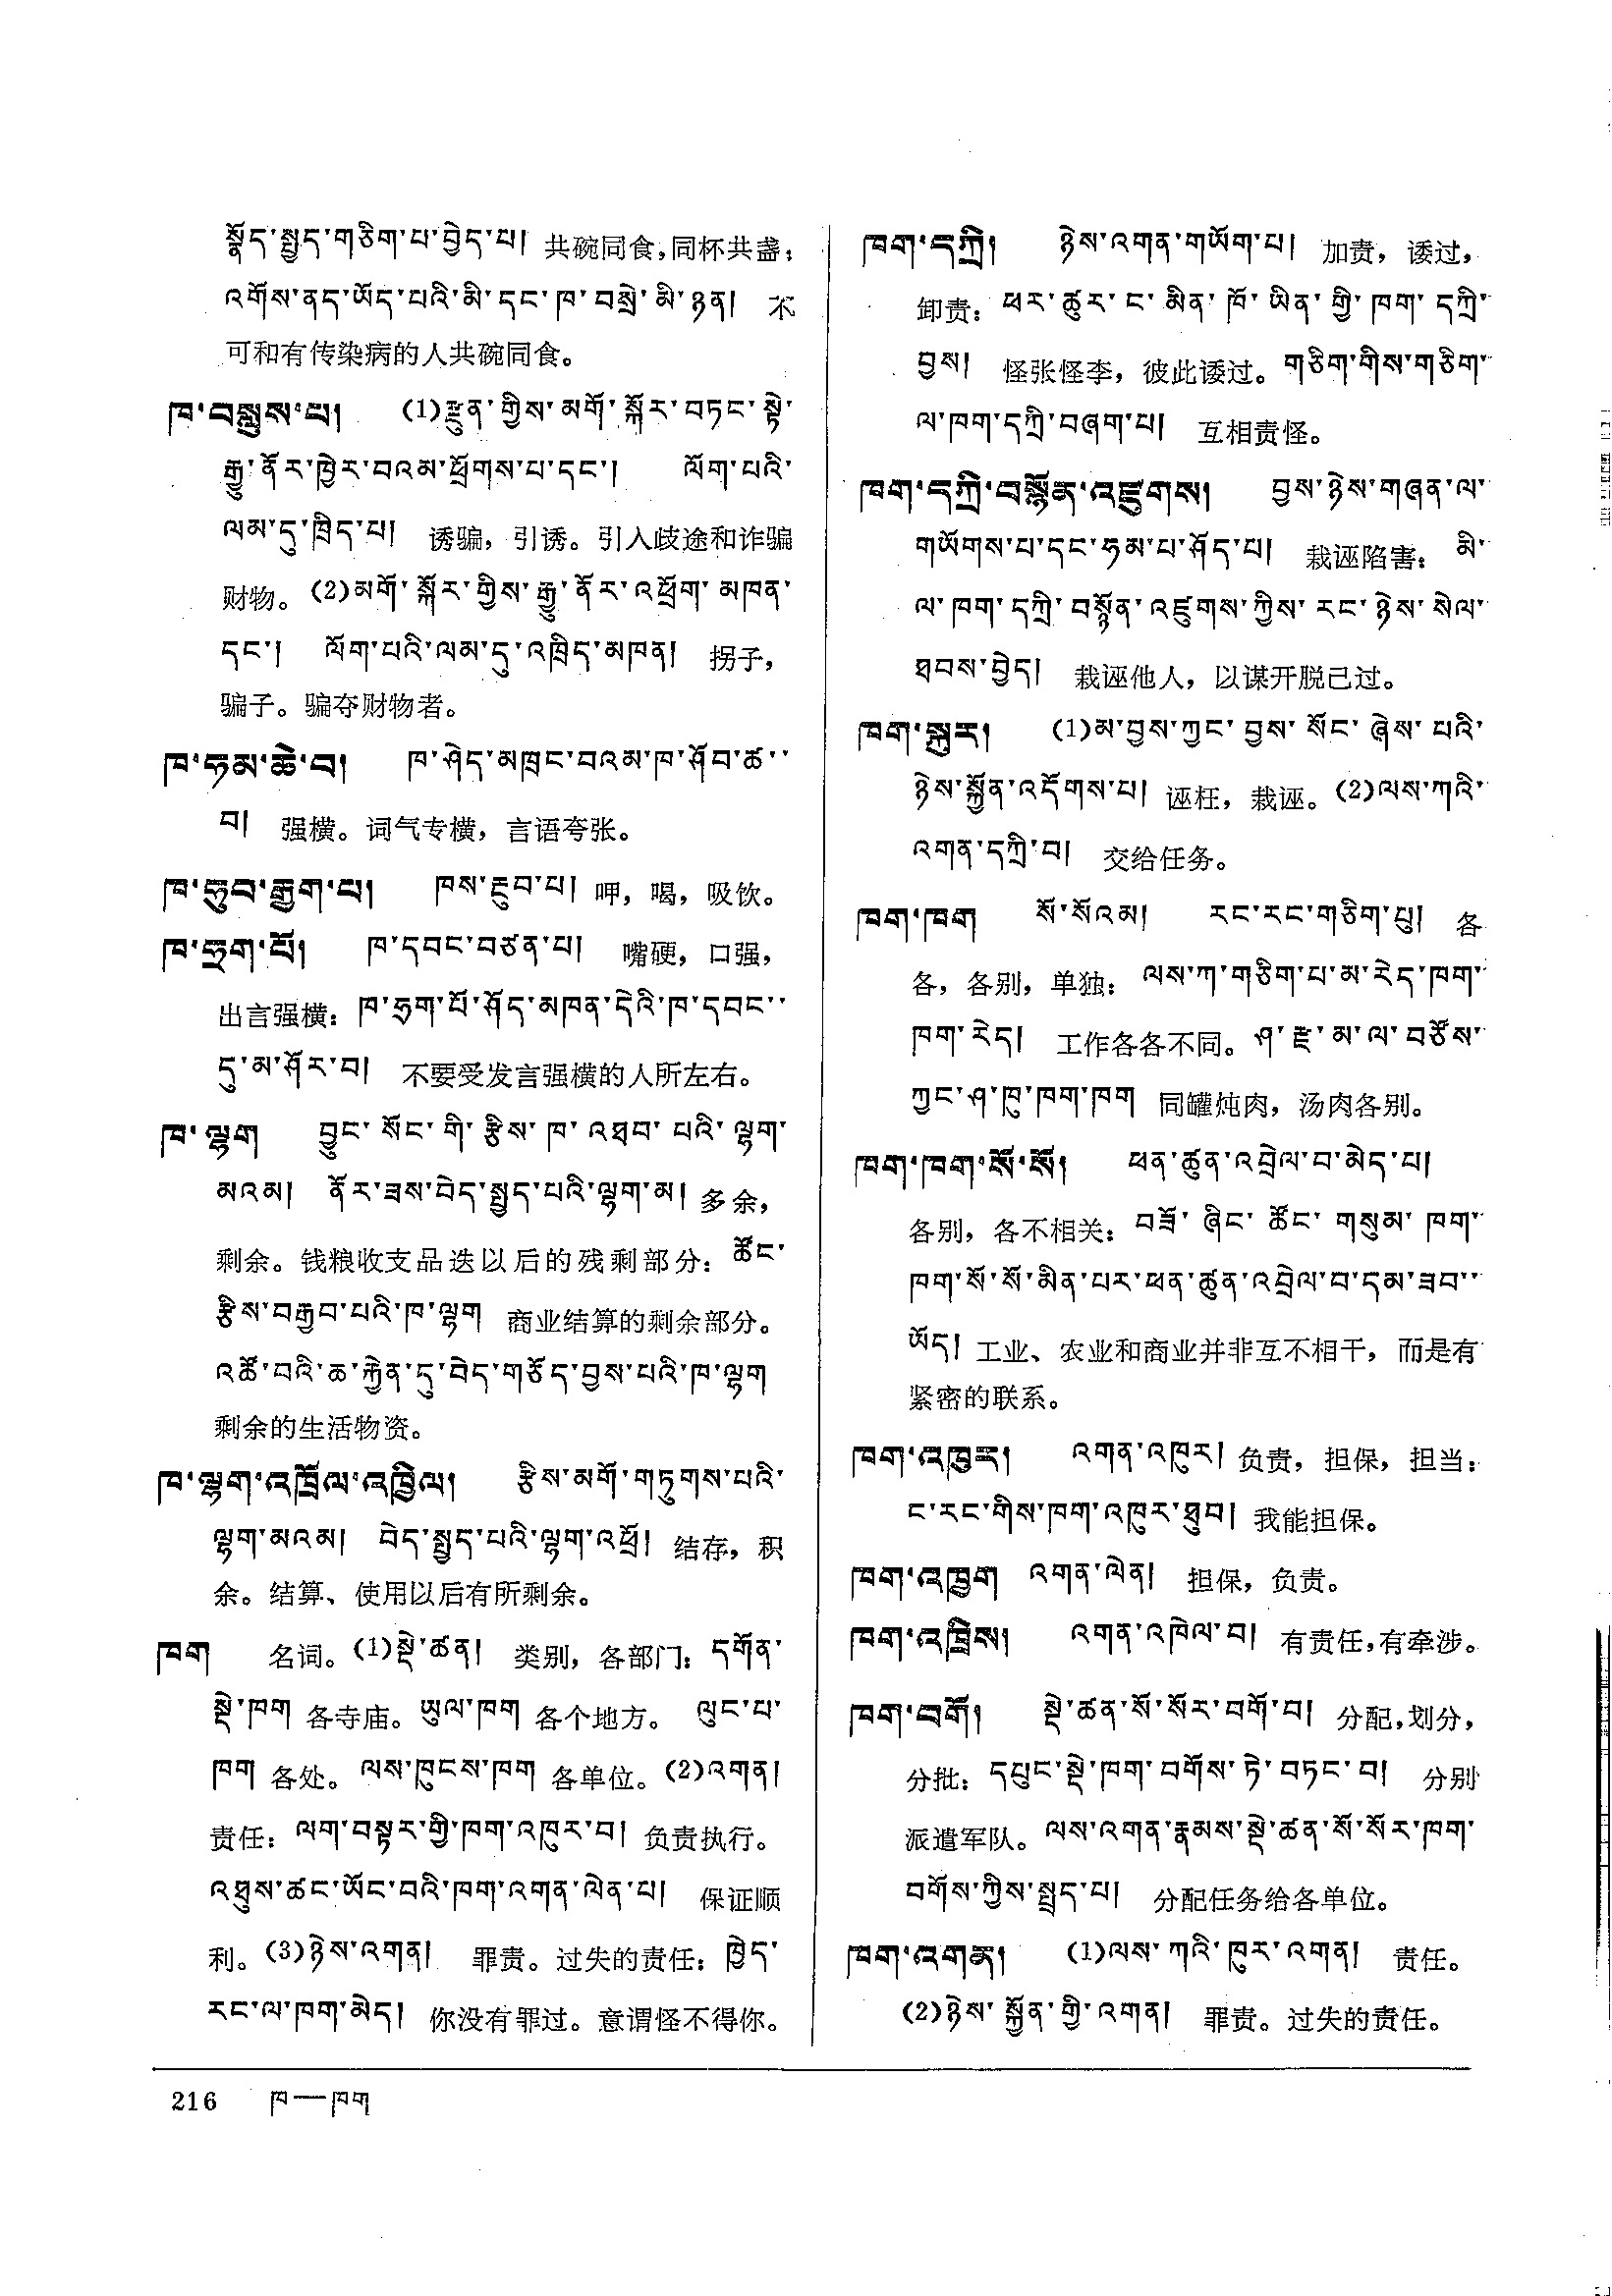 སྣོད་སྤྱད་གཅིག་པ་བྱེད་པ། 共碗同食,同杯共盏：
འགོས་ནད་ཡོད་པའི་མི་དང་ཁ་བསྲེ་མི་ཉན། 不
可和有传染病的人共碗同食。
ཁ་བསླུས་པ། (1)རྫུན་གྱིས་མགོ་སྐོར་བཏང་སྟེ་
རྒྱུ་ནོར་ཁྱེར་བའམ་ཕྲོགས་པ་དང་། ལོག་པའི་
ལམ་དུ་ཁྲིད་པ། 诱骗，引诱。引入歧途和诈骗
财物。(2)མགོ་སྐོར་གྱིས་རྒྱུ་ནོར་འཕྲོག་མཁན་
དང་། ལོག་པའི་ལམ་དུ་འཁྲིད་མཁན། 拐子，
骗子。骗夺财物者。
ཁ་ཧམ་ཆེ་བ། ཁ་ཤེད་མཁྲང་བའམ་ཁ་ཤོབ་ཚ་་
བ། 强横。词气专横，言语夸张。
ཁ་ཧུབ་རྒྱག་པ། ཁས་རྔུབ་པ། 呷，喝，吸饮。
ཁ་ཧྲག་པོ། ཁ་དབང་བཙན་པ། 嘴硬，口强，
出言强横：ཁ་ཧྲག་པོ་ཤོད་མཁན་དེའི་ཁ་དབང་་
དུ་མ་ཤོར་བ། 不要受发言强横的人所左右。
ཁ་ལྷག བྱུང་སོང་གི་རྩིས་ཁ་འཐབ་པའི་ལྷག་
མའམ། ནོར་ཟས་བེད་སྤྱད་པའི་ལྷག་མ། 多余，
剩余。钱粮收支品迭以后的残剩部分：ཚོང་
རྩིས་བརྒྱབ་པའི་ཁ་ལྷག 商业结算的剩余部分。
འཚོ་བའི་ཆ་རྐྱེན་དུ་བེད་གཅོད་བྱས་པའི་ཁ་ལྷག
剩余的生活物资。
ཁ་ལྷག་འཁྲོལ་འཁྱིལ། རྩིས་མགོ་གཏུགས་པའི་
ལྷག་མའམ། བེད་སྤྱད་པའི་ལྷག་འཕྲོ། 结存，积
余。结算、使用以后有所剩余。
ཁག 名词。(1)སྡེ་ཚན། 类别，各部门：དགོན་
སྡེ་ཁག 各寺庙。ཡུལ་ཁག 各个地方。 ལུང་པ་
ཁག 各处。ལས་ཁུངས་ཁག 各单位。(2)འགན།
责任：ལག་བསྟར་གྱི་ཁག་འཁུར་བ། 负责执行。
འཐུས་ཚང་ཡོང་བའི་ཁག་འགན་ལེན་པ། 保证顺
利。(3)ཉེས་འགན། 罪责。过失的责任：ཁྱེད་
རང་ལ་ཁག་མེད། 你没有罪过。意谓怪不得你。
ཁག་དཀྲི། ཉེས་འགན་གཡོག་པ། 加责，诿过，
卸责：ཕར་ཚུར་ང་མིན་ཁོ་ཡིན་གྱི་ཁག་དཀྲི་
བྱས། 怪张怪李，彼此诿过。གཅིག་གིས་གཅིག་
ལ་ཁག་དཀྲི་བཞག་པ། 互相责怪。
ཁག་དཀྲི་བསྙོན་འཛུགས། བྱས་ཉེས་གཞན་ལ་
གཡོགས་པ་དང་ཧམ་པ་ཤོད་པ། 栽诬陷害：མི་
ལ་ཁག་དཀྲི་བསྙོན་འཛུགས་ཀྱིས་རང་ཉེས་སེལ་
ཐབས་བྱེད། 栽诬他人，以谋开脱己过。
ཁག་སྐུར། (1)མ་བྱས་ཀྱང་བྱས་སོང་ཞེས་པའི་
ཉེས་སྐྱོན་འདོགས་པ། 诬枉，栽诬。(2)ལས་ཀའི་
འགན་དཀྲི་བ། 交给任务。
ཁག་ཁག སོ་སོའམ། རང་རང་གཅིག་པུ། 各
各，各别，单独：ལས་ཀ་གཅིག་པ་མ་རེད་ཁག་
ཁག་རེད། 工作各各不同。ཤ་རྫ་མ་ལ་བཙོས་
ཀྱང་ཤ་ཁུ་ཁག་ཁག 同罐炖肉，汤肉各别。
ཁག་ཁག་སོ་སོ། ཕན་ཚུན་འབྲེལ་བ་མེད་པ།
各别，各不相关：བཟོ་ཞིང་ཚོང་གསུམ་ཁག་
ཁག་སོ་སོ་མིན་པར་ཕན་ཚུན་འབྲེལ་བ་དམ་ཟབ་་
ཡོད། 工业、农业和商业并非互不相干，而是有
紧密的联系。
ཁག་འཁུར། འགན་འཁུར། 负责，担保，担当：
ང་རང་གིས་ཁག་འཁུར་ཐུབ། 我能担保。
ཁག་འཁྱག འགན་ལེན། 担保，负责。
ཁག་འཁྲིས། འགན་འཁེལ་བ། 有责任,有牵涉。
ཁག་བགོ། སྡེ་ཚན་སོ་སོར་བགོ་བ། 分配,划分，
分批：དཔུང་སྡེ་ཁག་བགོས་ཏེ་བཏང་བ། 分别
派遣军队。ལས་འགན་རྣམས་སྡེ་ཚན་སོ་སོར་ཁག་
བགོས་ཀྱིས་སྤྲད་པ། 分配任务给各单位。
ཁག་འགན། (1)ལས་ཀའི་ཁུར་འགན། 责任。
(2)ཉེས་སྐྱོན་གྱི་འགན། 罪责。过失的责任。
216 ཁ—ཁག